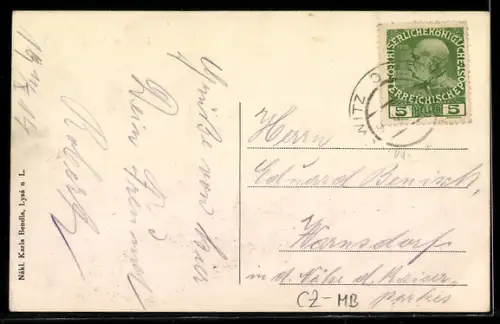 19 14
X
Grüße von hier
Dein Freund
Robert
Nákl. Karla Bendla, Lysá n L.
KAISERLICHEKÖNIGLICHE
ÖSTERREICHISCHE POST
5 HELLER 5
NITZ
Herrn
Eduard Benisch
Warnsdorf
in d. Nähe d. Kaiser-
parkes
CZ-MB